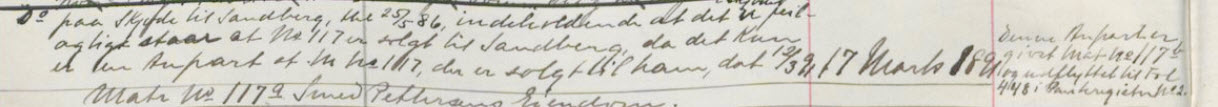 Do paa Skjøde til Sandberg, thl 25/5 86, indeholdende at det er feil-
agtigt staar at No 117 er solgt til Sandberg, da det kun
er en Anpart af M No 117, der er solgt til ham, dat 12/3 91 17 Marts 1891
Matr No 117a Smed Pettersens Eiendom.
Denne Anpart er
givet Mat No 117b
og udflyttet til Fol
448 i Panteregister No 2.